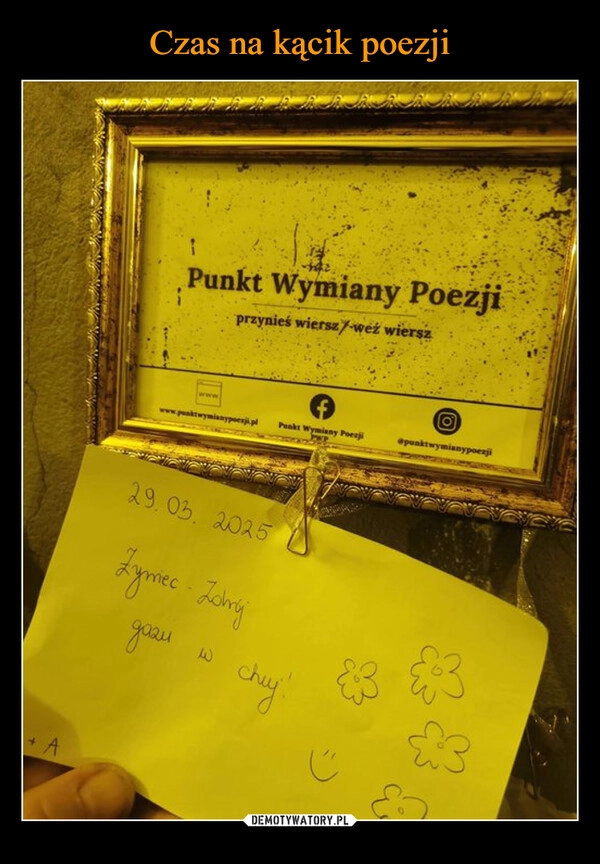 Czas na kącik poezji
Punkt Wymiany Poezji
przynieś wiersz / weź wiersz
www.
www.punktwymianypoezji.pl
Punkt Wymiany Poezji
PWP
@punktwymianypoezji
29. 03. 2025
Żywiec - Zdrój
gazu w chuj!
+ A
DEMOTYWATORY.PL